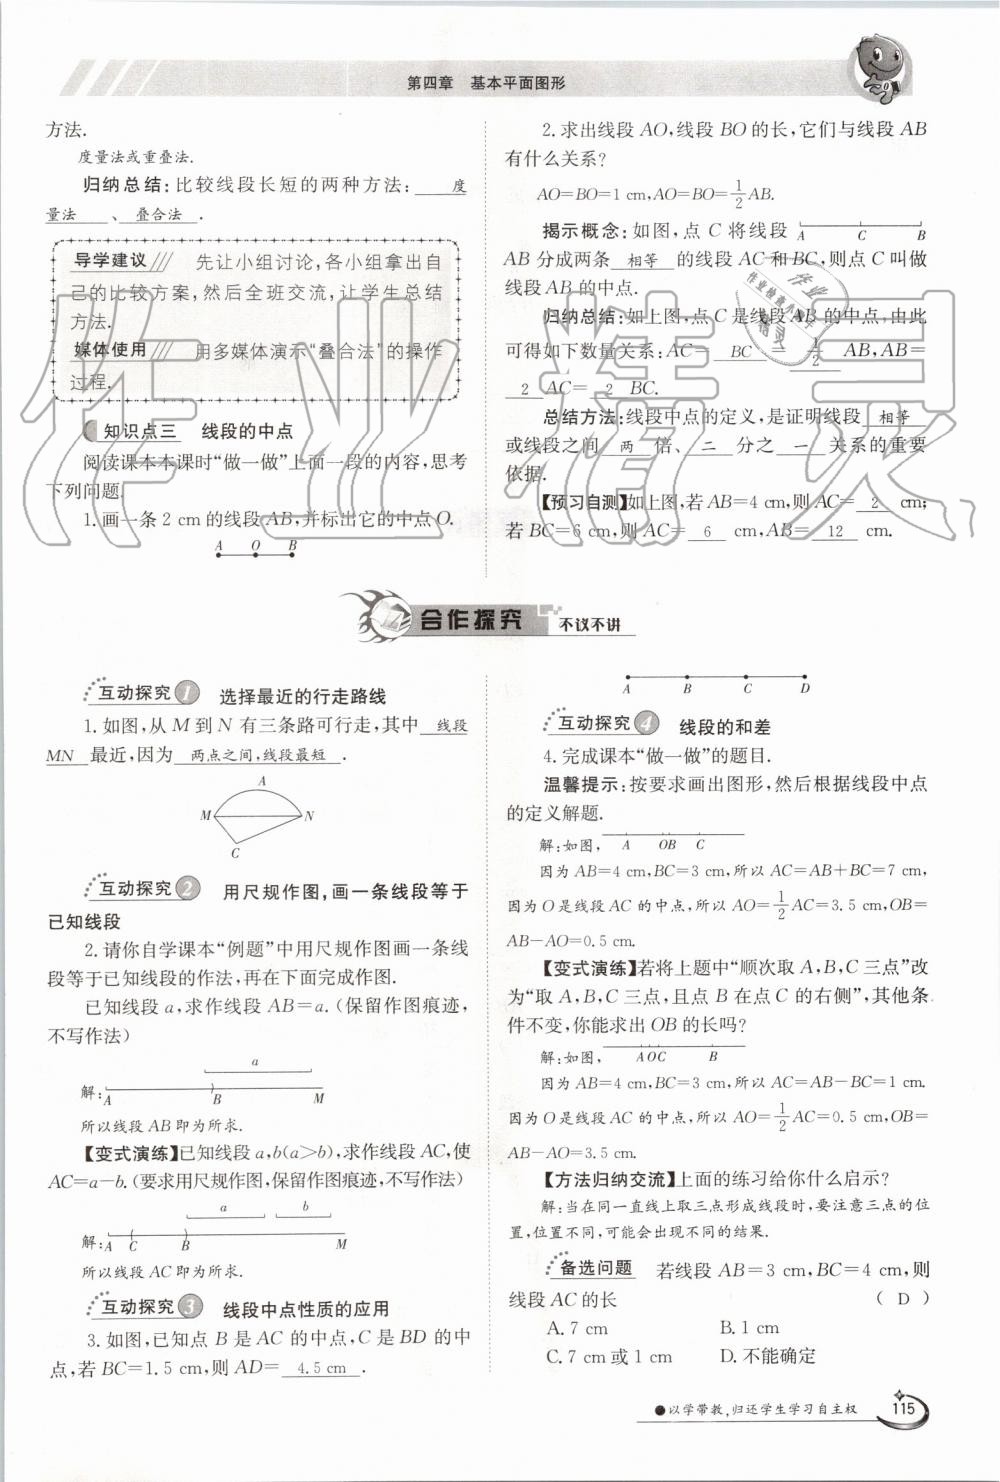 第四章 基本平面图形
方法.
度量法或重叠法.
归纳总结:比较线段长短的两种方法: 度
量法 、 叠合法 .
导学建议 先让小组讨论,各小组拿出自
己的比较方案,然后全班交流,让学生总结
方法.
媒体使用 用多媒体演示“叠合法”的操作
过程.
知识点三 线段的中点
阅读课本本课时“做一做”上面一段的内容,思考
下列问题.
1.画一条 2 cm 的线段 AB,并标出它的中点 O.
A O B
2.求出线段 AO,线段 BO 的长,它们与线段 AB
有什么关系?
AO=BO=1 cm,AO=BO=1/2 AB.
揭示概念:如图,点 C 将线段 A C B
AB 分成两条 相等 的线段 AC 和 BC,则点 C 叫做
线段 AB 的中点.
归纳总结:如上图,点 C 是线段 AB 的中点,由此
可得如下数量关系:AC= BC = 1/2 AB,AB=
2 AC= 2 BC.
总结方法:线段中点的定义,是证明线段 相等
或线段之间 两 倍、 二 分之 一 关系的重要
依据.
【预习自测】如上图,若 AB=4 cm,则 AC= 2 cm;
若 BC=6 cm,则 AC= 6 cm,AB= 12 cm.
合作探究 不议不讲
互动探究 1 选择最近的行走路线
1.如图,从 M 到 N 有三条路可行走,其中 线段
MN 最近,因为 两点之间,线段最短 .
A
M N
C
互动探究 2 用尺规作图,画一条线段等于
已知线段
2.请你自学课本“例题”中用尺规作图画一条线
段等于已知线段的作法,再在下面完成作图.
已知线段 a,求作线段 AB=a.(保留作图痕迹,
不写作法)
a
解: A B M
所以线段 AB 即为所求.
【变式演练】已知线段 a,b(a>b),求作线段 AC,使
AC=a-b.(要求用尺规作图,保留作图痕迹,不写作法)
a b
解: A C B M
所以线段 AC 即为所求.
互动探究 3 线段中点性质的应用
3.如图,已知点 B 是 AC 的中点,C 是 BD 的中
点,若 BC=1.5 cm,则 AD= 4.5 cm .
A B C D
互动探究 4 线段的和差
4.完成课本“做一做”的题目.
温馨提示:按要求画出图形,然后根据线段中点
的定义解题.
解:如图, A OB C
因为 AB=4 cm,BC=3 cm,所以 AC=AB+BC=7 cm,
因为 O 是线段 AC 的中点,所以 AO=1/2 AC=3.5 cm,OB=
AB-AO=0.5 cm.
【变式演练】若将上题中“顺次取 A,B,C 三点”改
为“取 A,B,C 三点,且点 B 在点 C 的右侧”,其他条
件不变,你能求出 OB 的长吗?
解:如图, AOC B
因为 AB=4 cm,BC=3 cm,所以 AC=AB-BC=1 cm.
因为 O 是线段 AC 的中点,所以 AO=1/2 AC=0.5 cm,OB=
AB-AO=3.5 cm.
【方法归纳交流】上面的练习给你什么启示?
解:当在同一直线上取三点形成线段时,要注意三点的位
置,位置不同,可能会出现不同的结果.
备选问题 若线段 AB=3 cm,BC=4 cm,则
线段 AC 的长 ( D )
A. 7 cm B. 1 cm
C. 7 cm 或 1 cm D. 不能确定
●以学带教,归还学生学习自主权 115
作业精灵